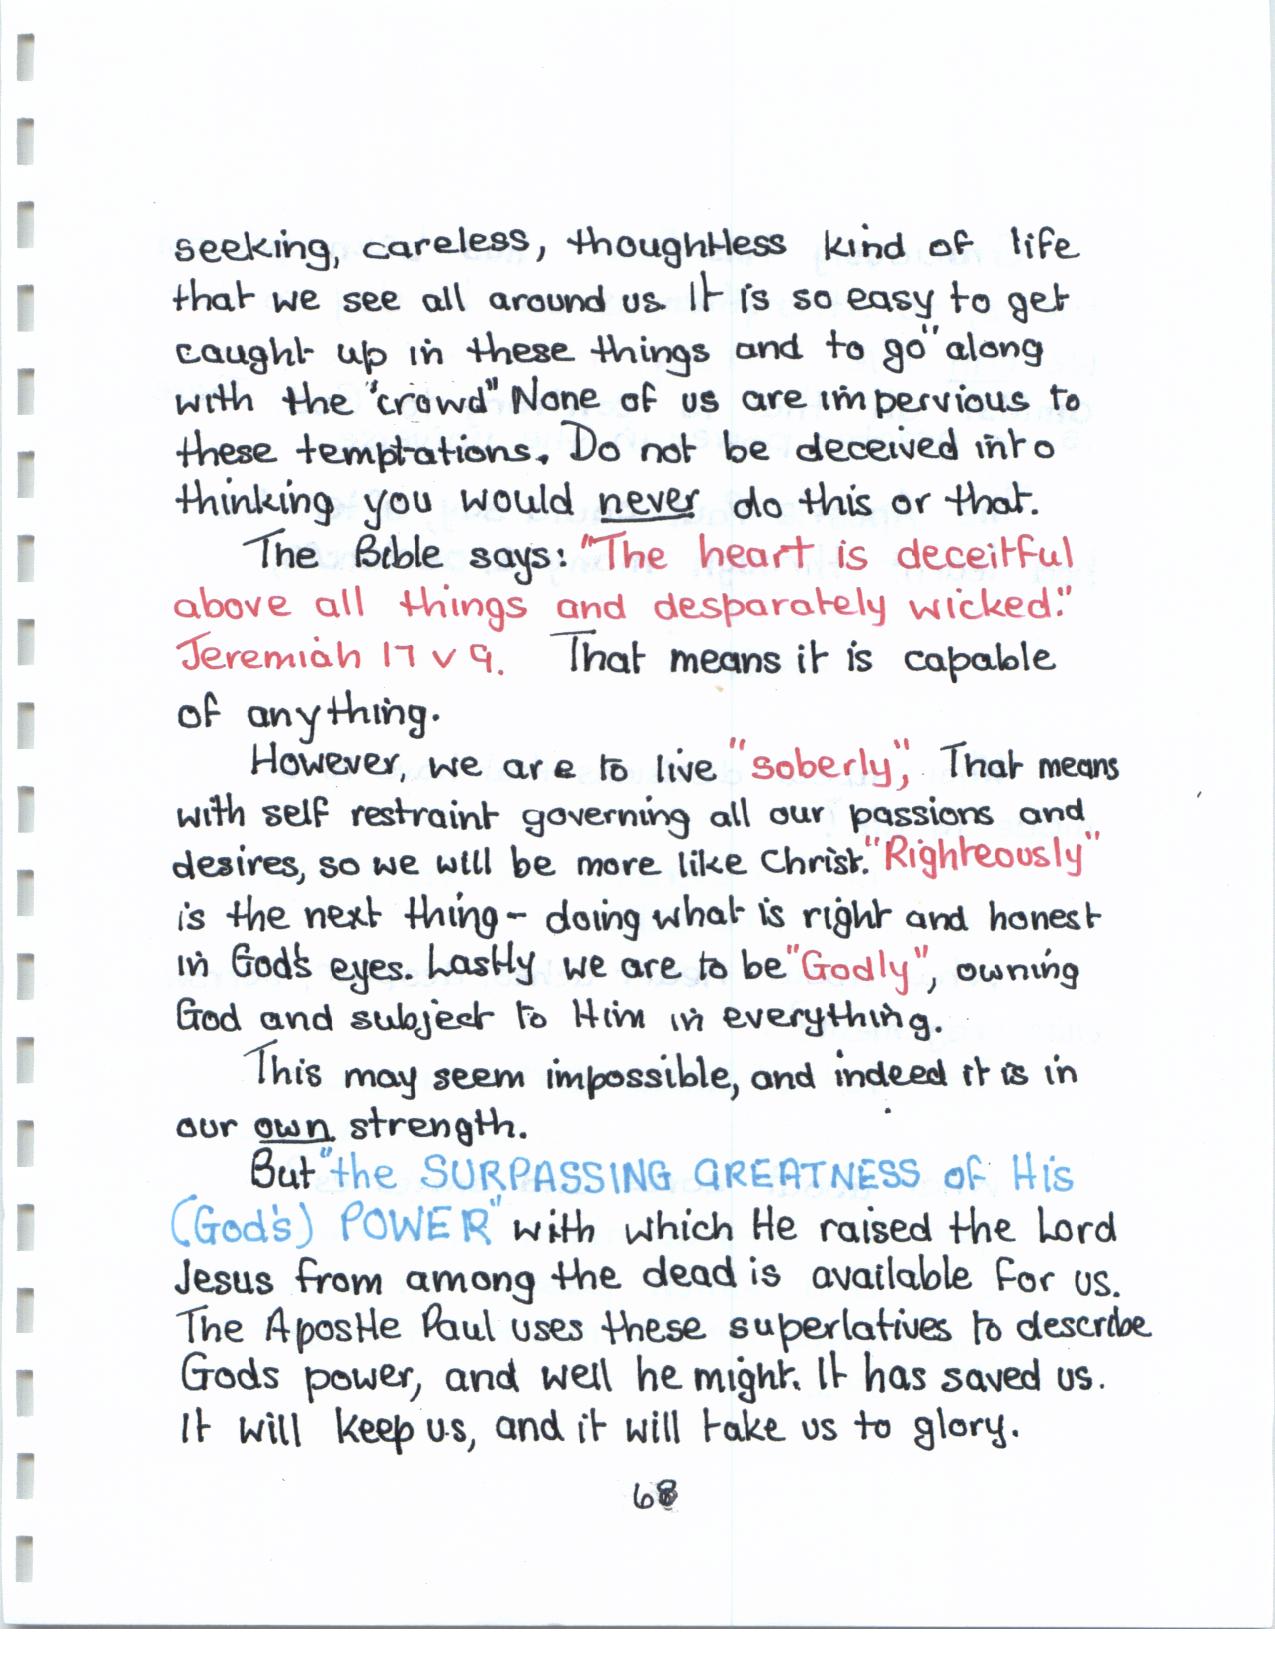 seeking, careless, thoughtless kind of life
that we see all around us. It is so easy to get
caught up in these things and to go "along
with the "crowd" None of us are impervious to
these temptations. Do not be deceived into
thinking you would never do this or that.
The Bible says: "The heart is deceitful
above all things and desparately wicked."
Jeremiah 17 v 9. That means it is capable
of anything.
However, we are to live "soberly", That means
with self restraint governing all our passions and
desires, so we will be more like Christ. "Righteously"
is the next thing - doing what is right and honest
in God's eyes. Lastly we are to be "Godly", owning
God and subject to Him in everything.
This may seem impossible, and indeed it is in
our own strength.
But "the SURPASSING GREATNESS of His
(God's) POWER" with which He raised the Lord
Jesus from among the dead is available for us.
The Apostle Paul uses these superlatives to describe
Gods power, and well he might. It has saved us.
It will keep us, and it will take us to glory.
68